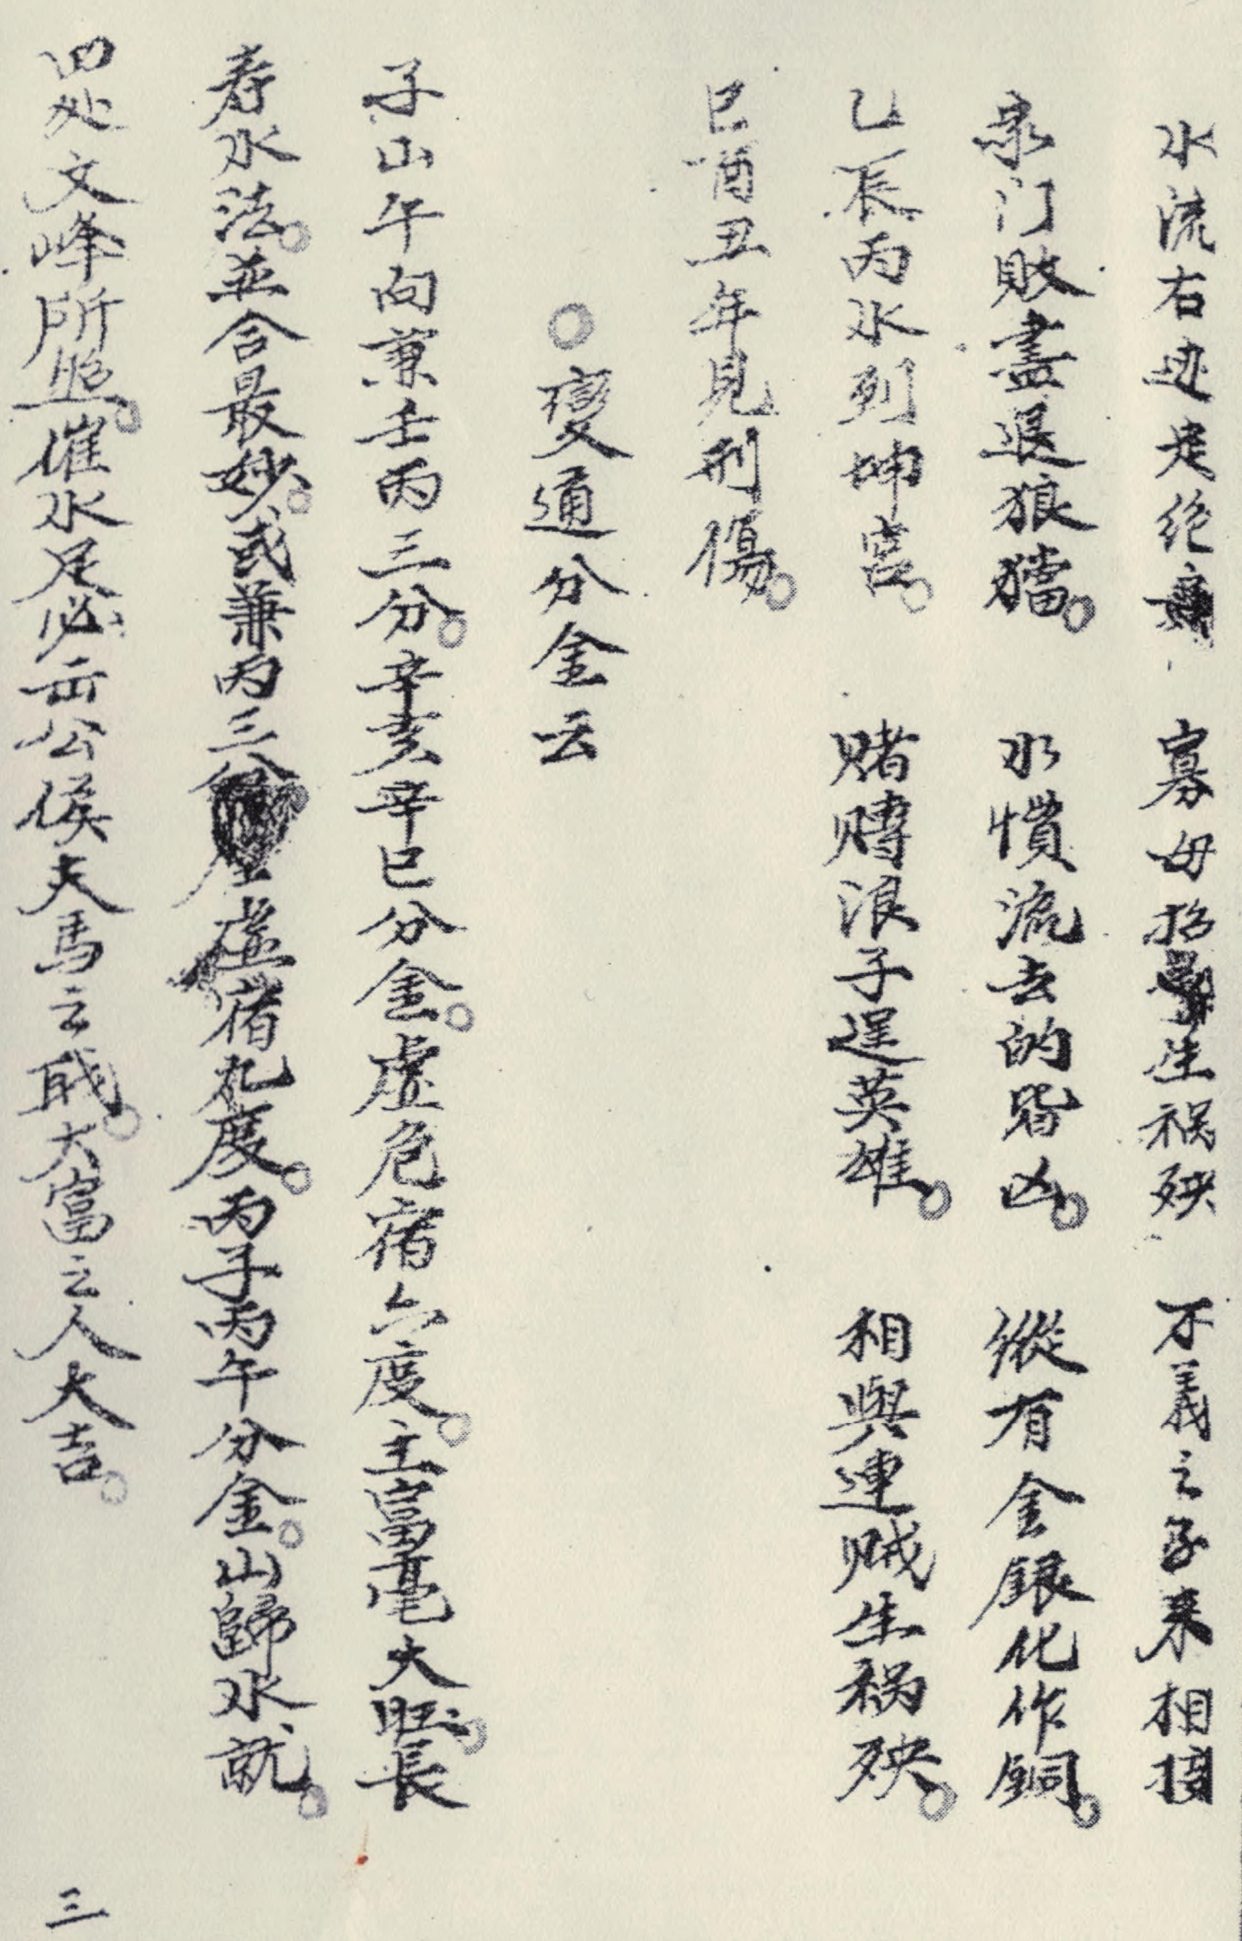 水流右边是绝 寡母招 生祸殃 不義之子来相接
家门敗盡退狼犺。 水慣流去的皆凶。 縱有金銀化作銅。
乙辰丙水到坤宫。 赌賻浪子逞英雄。 相與連贼生祸殃。
巳酉丑年見刑傷。
○變通分金云
子山午向兼壬丙三分。辛亥辛巳分金。虚危宿六度。主富毫大旺。長
寿水法。並合最妙。或兼丙三分 虚宿九度。丙子丙午分金。山歸水就。
四处文峰所照。催水足必出公侯夫馬之職。大富之人大吉。
三